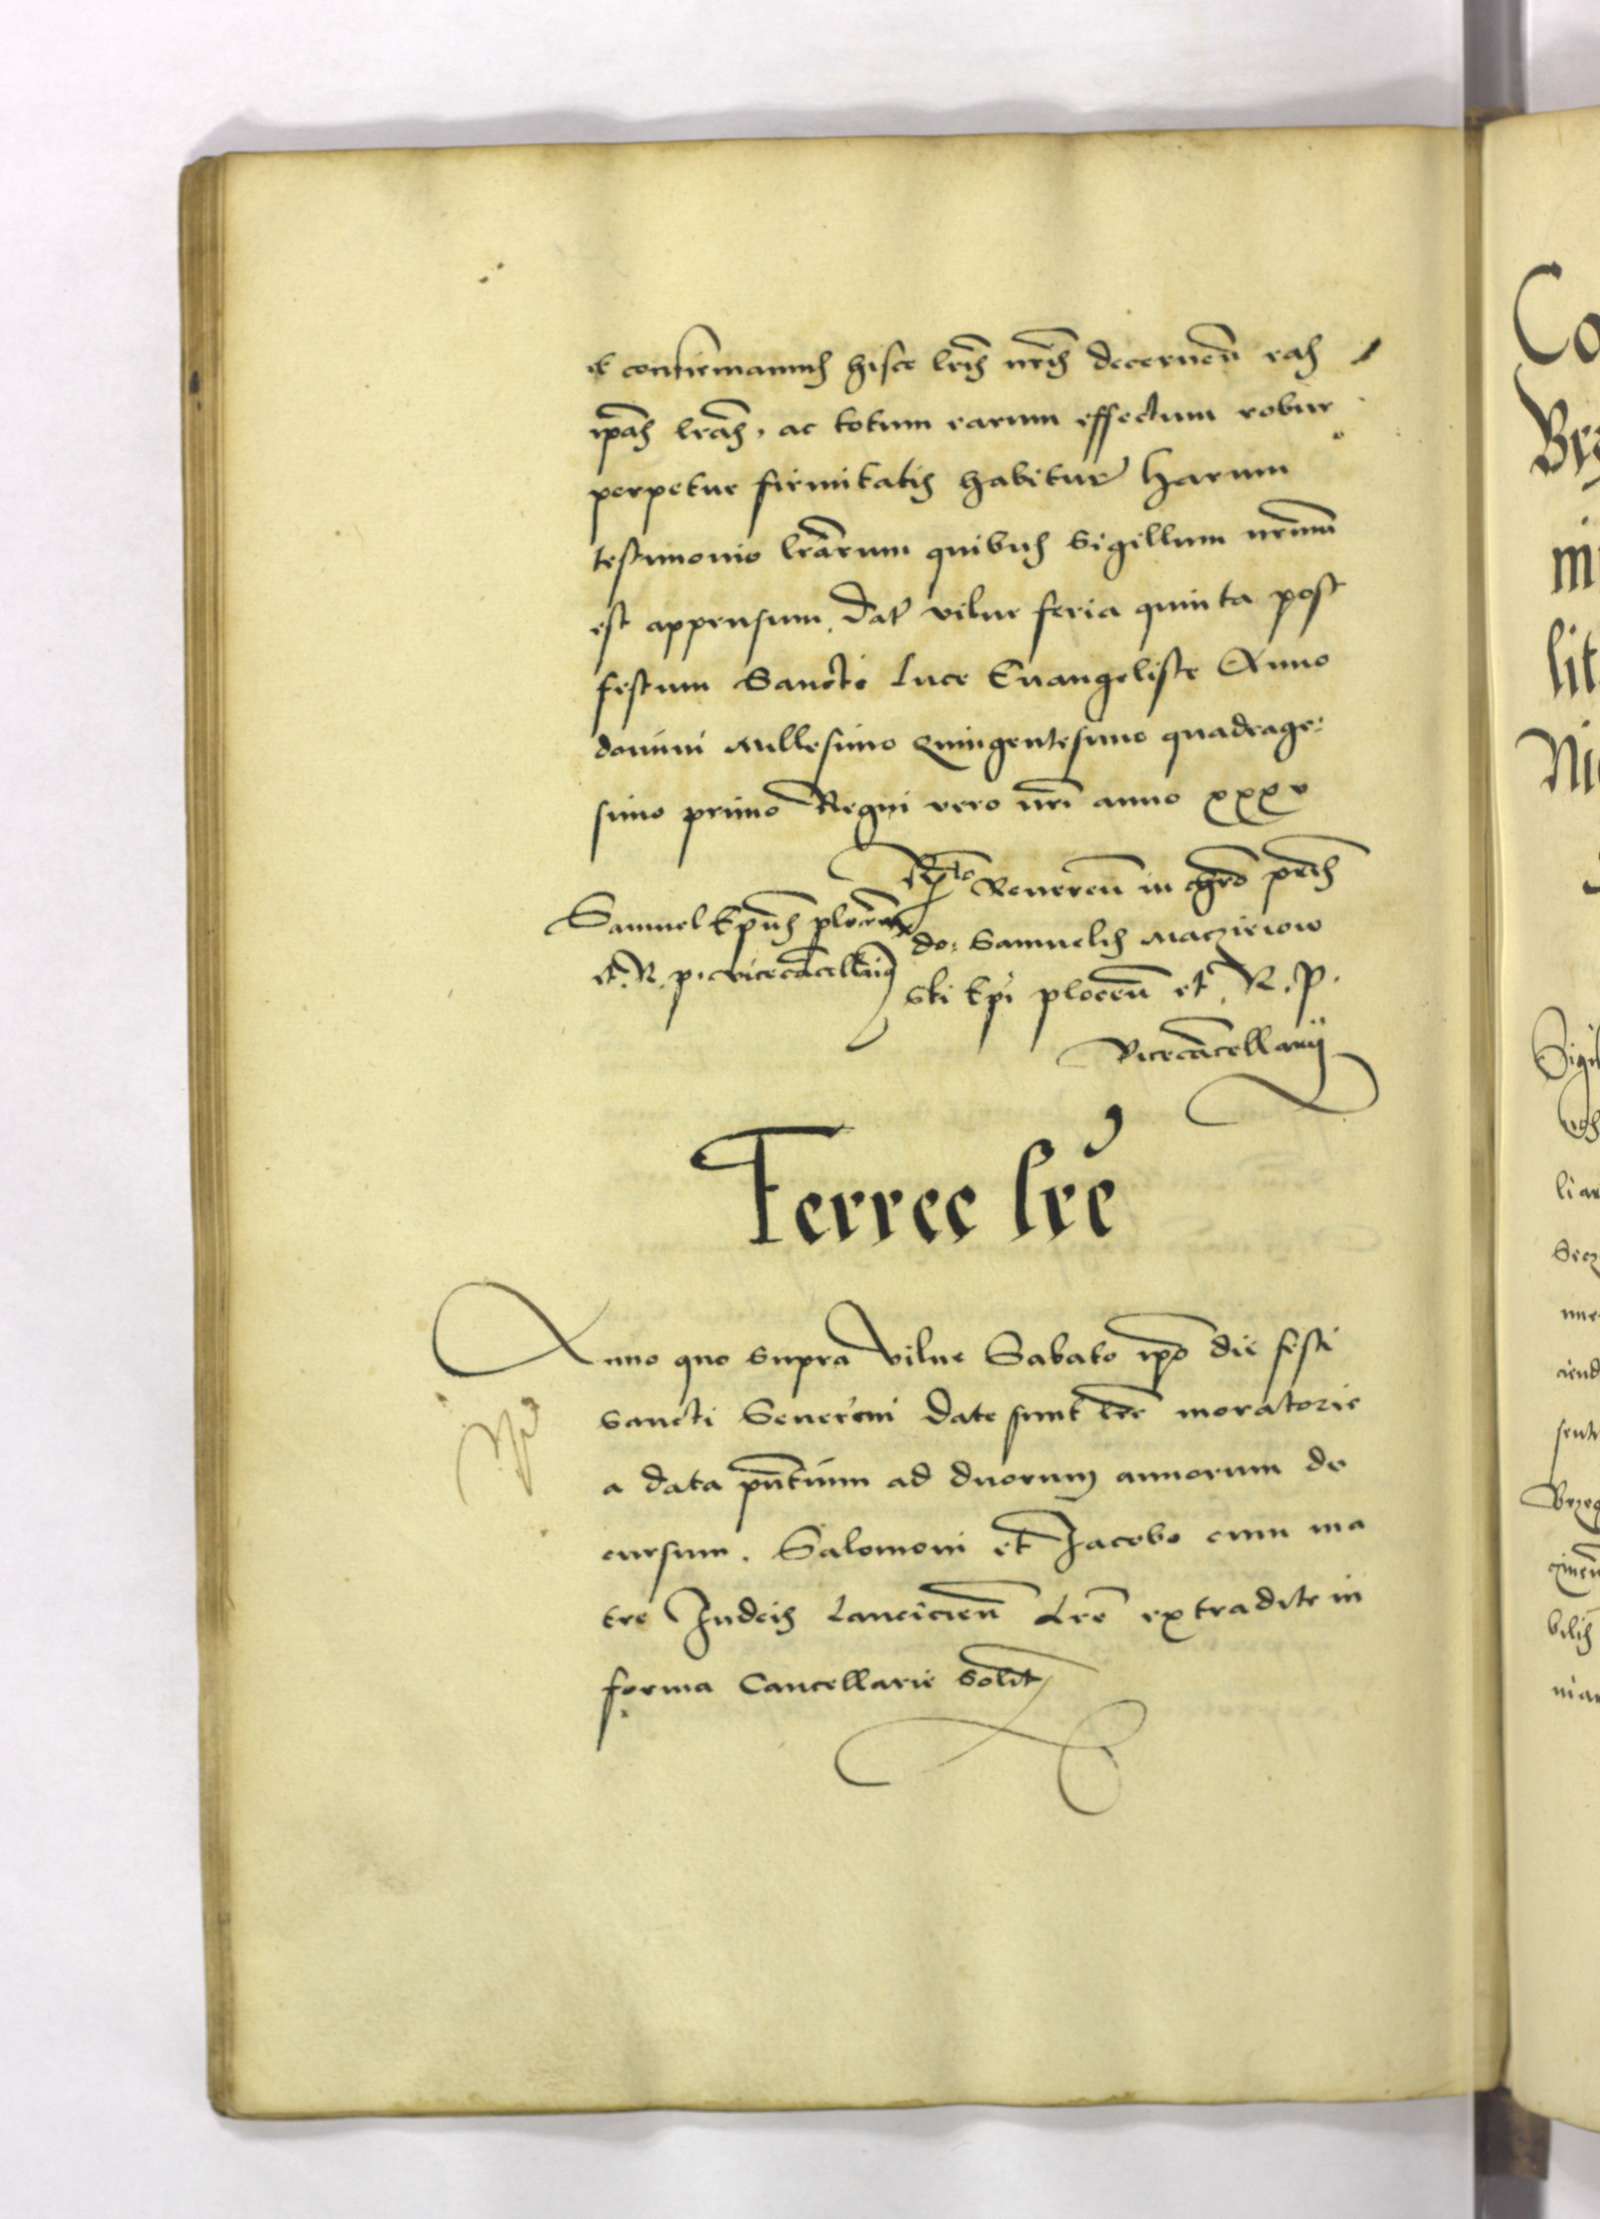 & confirmamus hisce lris nris decernen̄ eas
ip̄as lrās, ac totum earum effectum robur
perpetue firmitatis habitur̄ Harum
testimonio lrārum quibus Sigillum nrm̄
est appensum. Dat̄ vilne feria quinta post
festum Sancti Luce Evangeliste Anno
domini Millesimo Quingentesimo quadrage:
simo primo Regni vero nri anno xxxv
Samuel Ep̄us plocen̄
et. R. p. vicecācellarius
R̄to Reueren̄ in chrō pr̄is
do: Samuelis Maczieiow
ski Ep̄i plocen̄ et. R. P.
Vicecācellarij
Ferree lrē
Anno quo supra Vilne Sabato ip̄o die festi
sancti Seuerini date sunt lrē moratorie
a data pn̄tium ad duorum annorum de
cursum. Salomoni et Jacobo cum ma
tre Judeis Lancicien̄ Lrē extradite in
forma Cancellarie solit̄
Co
Brz
mi
lit
Nic
Sigi